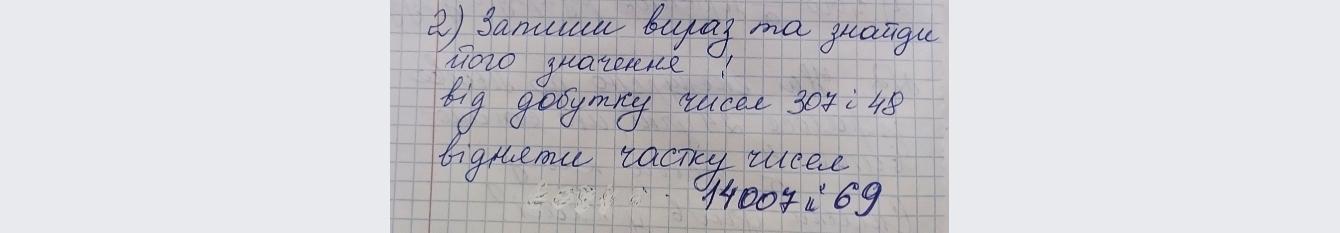 2) Запиши вираз та знайди
його значення :
від добутку чисел 307 і 48
відняти частку чисел
14007 і 69